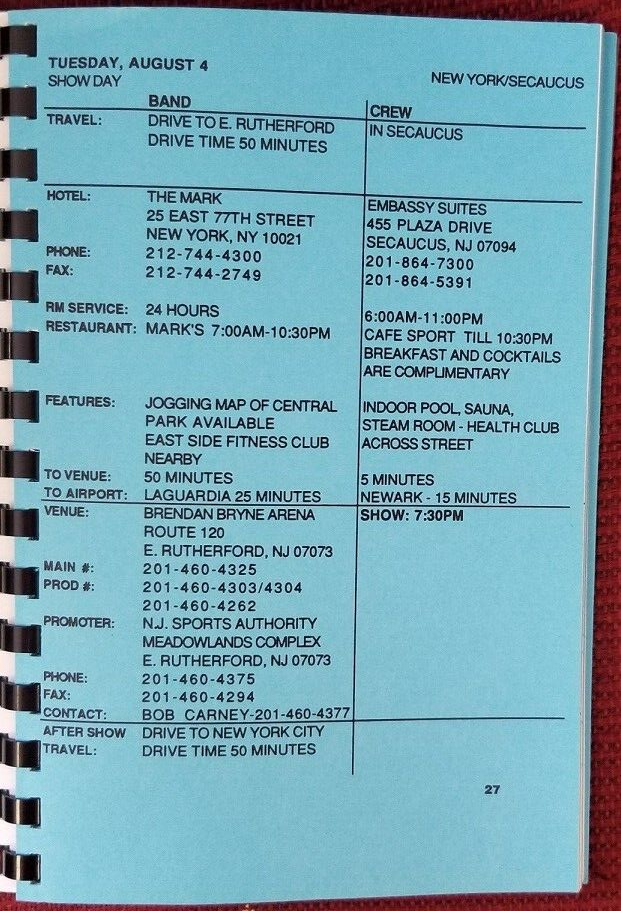 TUESDAY, AUGUST 4
SHOW DAY NEW YORK/SECAUCUS
BAND CREW
TRAVEL: DRIVE TO E. RUTHERFORD IN SECAUCUS
DRIVE TIME 50 MINUTES
HOTEL: THE MARK EMBASSY SUITES
25 EAST 77TH STREET 455 PLAZA DRIVE
NEW YORK, NY 10021 SECAUCUS, NJ 07094
PHONE: 212-744-4300 201-864-7300
FAX: 212-744-2749 201-864-5391
RM SERVICE: 24 HOURS 6:00AM-11:00PM
RESTAURANT: MARK'S 7:00AM-10:30PM CAFE SPORT TILL 10:30PM
BREAKFAST AND COCKTAILS
ARE COMPLIMENTARY
FEATURES: JOGGING MAP OF CENTRAL INDOOR POOL, SAUNA,
PARK AVAILABLE STEAM ROOM - HEALTH CLUB
EAST SIDE FITNESS CLUB ACROSS STREET
NEARBY
TO VENUE: 50 MINUTES 5 MINUTES
TO AIRPORT: LAGUARDIA 25 MINUTES NEWARK - 15 MINUTES
VENUE: BRENDAN BRYNE ARENA SHOW: 7:30PM
ROUTE 120
E. RUTHERFORD, NJ 07073
MAIN #: 201-460-4325
PROD #: 201-460-4303/4304
201-460-4262
PROMOTER: N.J. SPORTS AUTHORITY
MEADOWLANDS COMPLEX
E. RUTHERFORD, NJ 07073
PHONE: 201-460-4375
FAX: 201-460-4294
CONTACT: BOB CARNEY-201-460-4377
AFTER SHOW DRIVE TO NEW YORK CITY
TRAVEL: DRIVE TIME 50 MINUTES
27